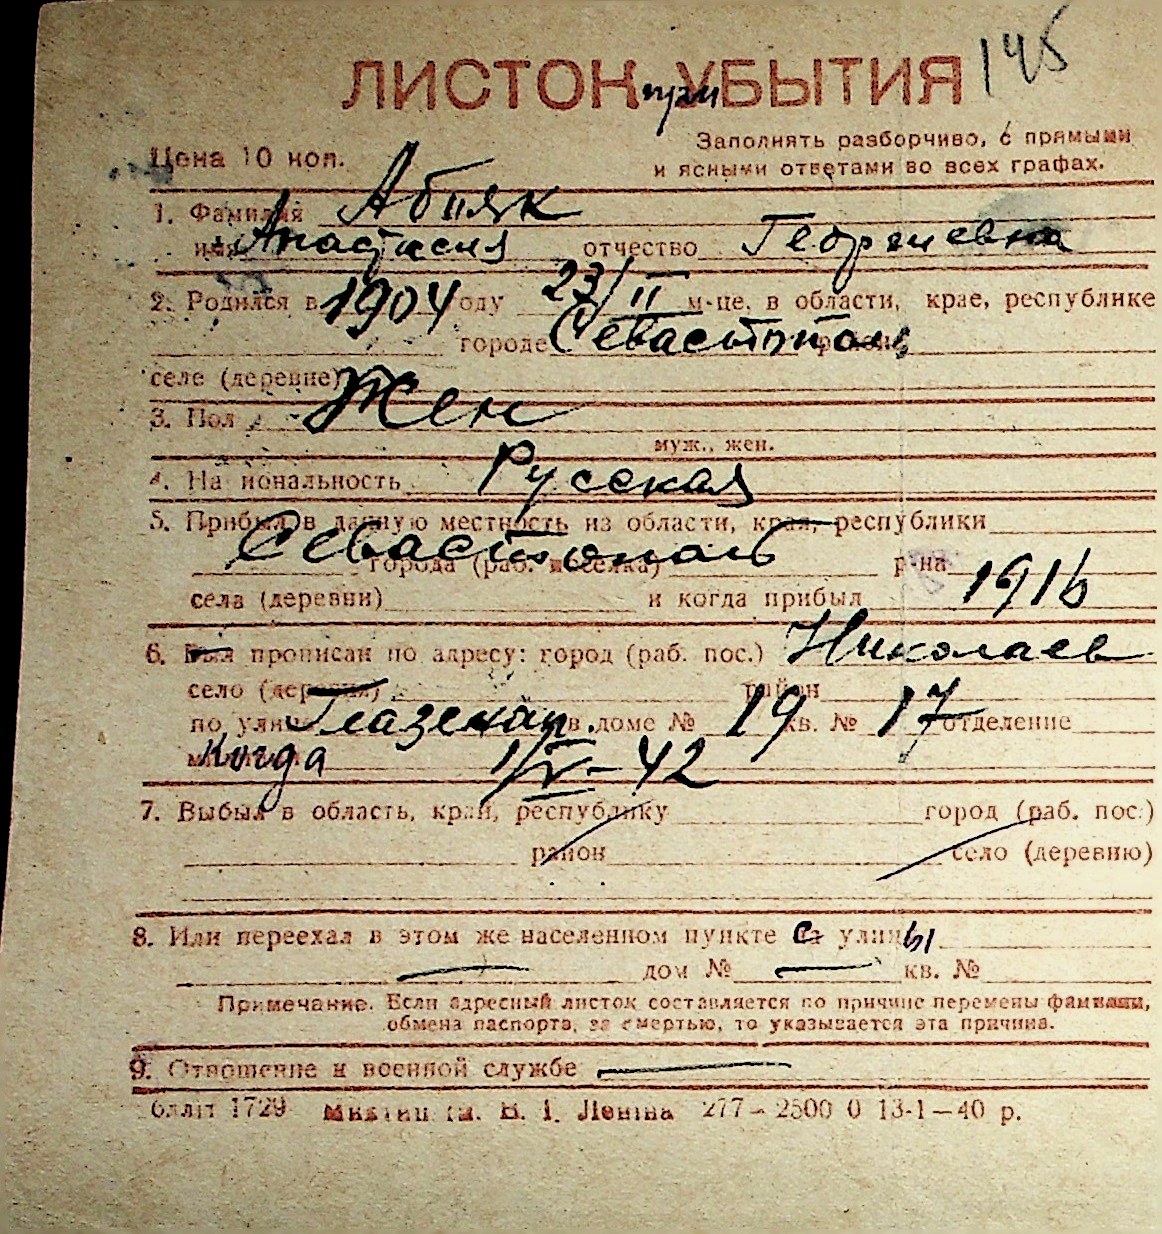 145
ЛИСТОК УБЫТИЯ
при
Заполнять разборчиво, с прямыми
Цена 10 коп.
и ясными ответами во всех графах.
1. Фамилия Абияк
имя Анастасия отчество Георгиевна
2. Родился в 1904 году 23/II м-це, в области, крае, республике
городе Севастополь
селе (деревне)
3. Пол Жен
муж., жен.
4. Национальность Русская
5. Прибыл в данную местность из области, края, республики
Севастополь
города (раб. поселка) р-на
села (деревни) и когда прибыл 1916
6. Был прописан по адресу: город (раб. пос.) Николаев
село (деревня) район
по улице Глазенап. в доме № 19 кв. № 17 отделение
Когда 1/IV-42
7. Выбыл в область, край, республику город (раб. пос.)
район село (деревню)
8. Или переехал в этом же населенном пункте с улицы
дом № кв. №
Примечание. Если адресный листок составляется по причине перемены фамилии,
обмена паспорта, за смертью, то указывается эта причина.
9. Отношение к военной службе
1729 В. І. Леніна 277–2500 0 13-1–40 р.